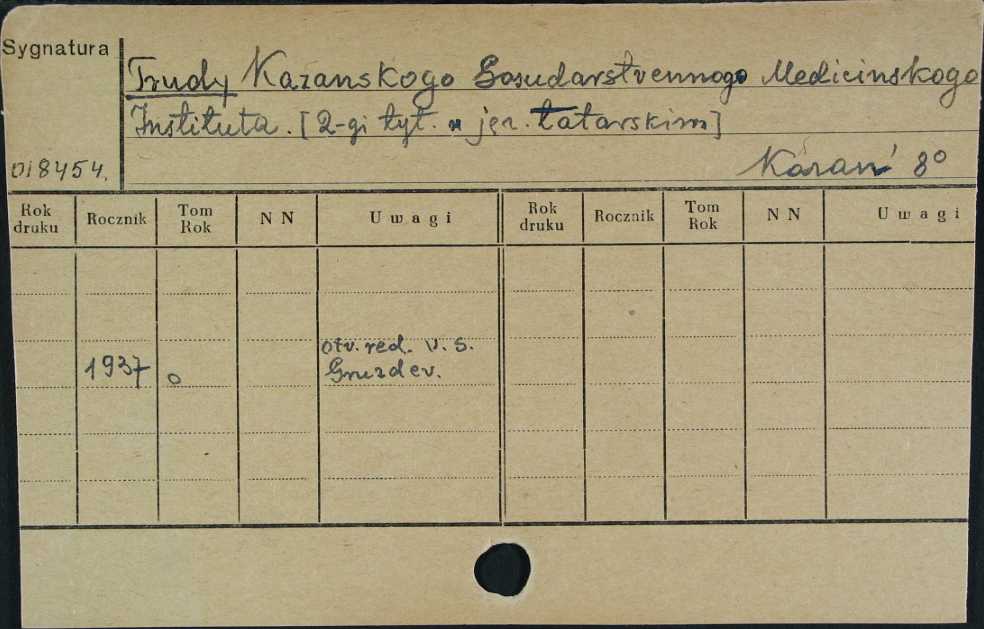 Sygnatura
Trudy Kazanskogo Gosudarstvennogo Medicinskogo
Instituta. [2-gi tyt. w jęz. tatarskim]
018454.
Kazań 8°
Rok druku Rocznik Tom Rok NN Uwagi Rok druku Rocznik Tom Rok NN Uwagi
otv. red. V. S.
1937 o Gruzdev.